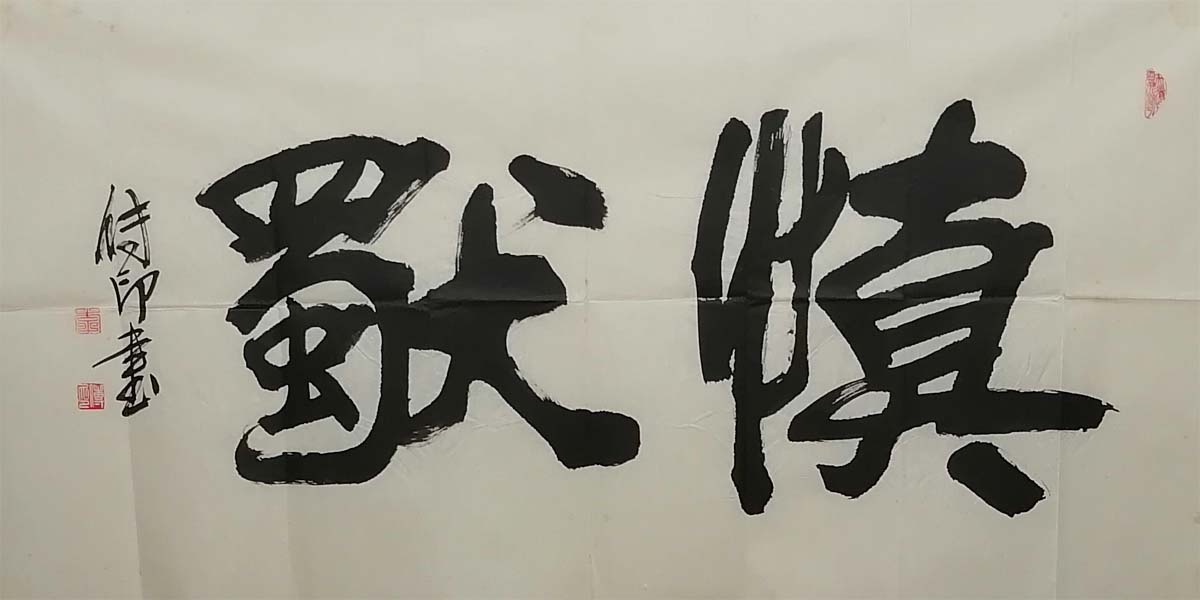 慎獨
傅印書